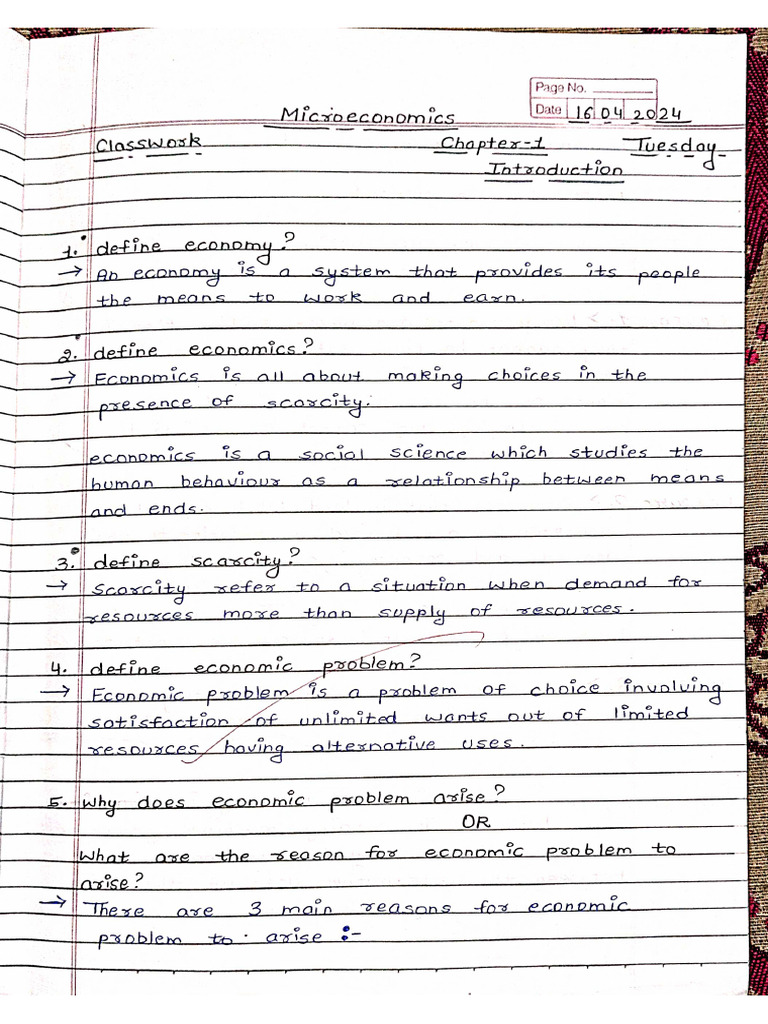 Page No.
Date 16 04 2024
Microeconomics
Classwork Chapter-1 Tuesday
Introduction
1. define economy?
→ An economy is a system that provides its people
the means to work and earn.
2. define economics?
→ Economics is all about making choices in the
presence of scarcity.
economics is a social science which studies the
human behaviour as a relationship between means
and ends.
3. define scarcity?
→ Scarcity refer to a situation when demand for
resources more than supply of resources.
4. define economic problem?
→ Economic problem is a problem of choice involving
satisfaction of unlimited wants out of limited
resources having alternative uses.
5. Why does economic problem arise?
OR
What are the reason for economic problem to
arise?
→ There are 3 main reasons for economic
problem to arise :-